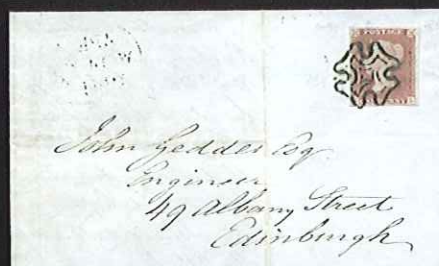 POSTAGE
John Geddes Esq
Engineer
49 Albany Street
Edinburgh